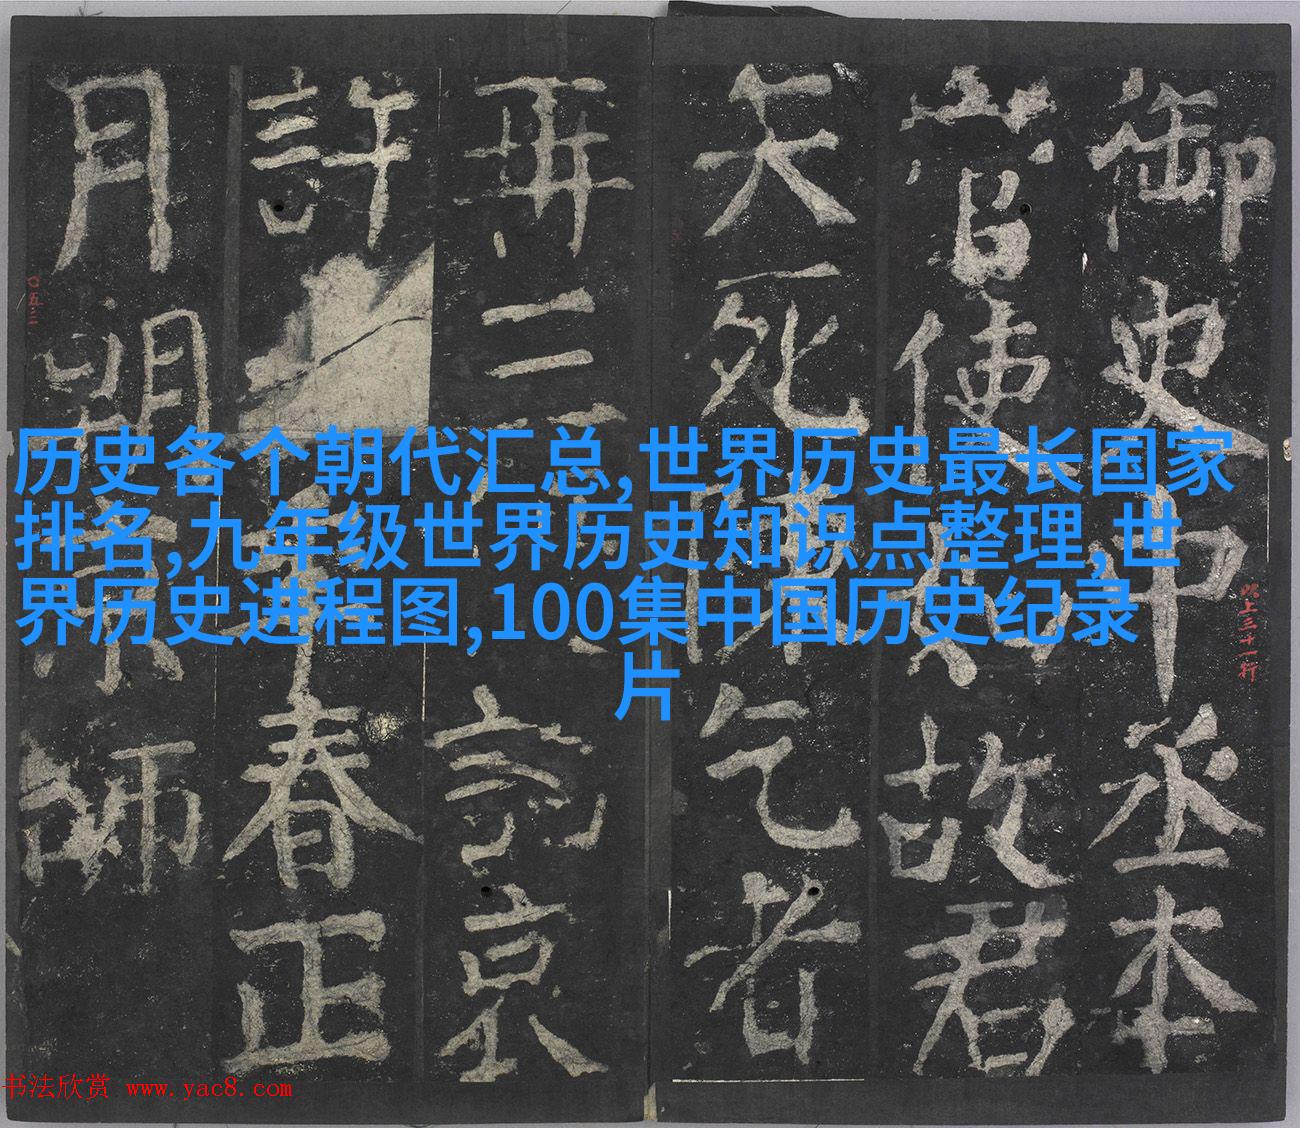 历史各个朝代汇总,世界历史最长国家
排名,九年级世界历史知识点整理,世
界历史进程图,100集中国历史纪录
片
御史中丞本
使 故君
矢死 乞者
再二 京
許 春正
月朝京師
○五三
以上三十一行
书法欣赏 www.yac8.com